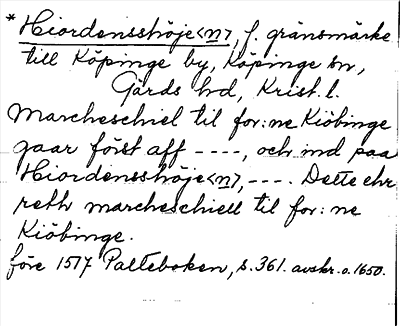 * Hiordensshöje<n>, f. gränsmärke
till Köpinge by, Köpinge sn,
Gärds hd, Krist. l.
Marcheschiel til for:ne Kiöbinge
gaar först aff ----, och ind paa
Hiordensshöje<n>, ----. Dette ehr
reth marcheschiell til for:ne
Kiöbinge.
före 1577 Palteboken, s. 361. avskr. o. 1650.